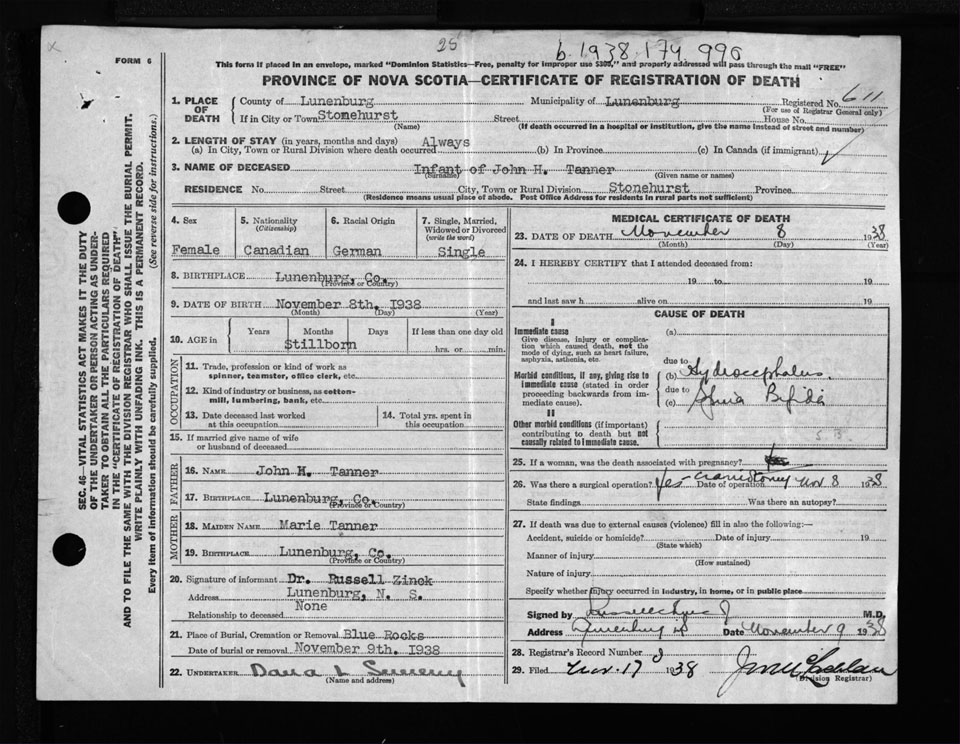 25
b.1938.174 990
FORM 6
This form if placed in an envelope, marked "Dominion Statistics—Free, penalty for improper use $300," and properly addressed will pass through the mail "FREE"
PROVINCE OF NOVA SCOTIA—CERTIFICATE OF REGISTRATION OF DEATH
SEC. 46—VITAL STATISTICS ACT MAKES IT THE DUTY
OF THE UNDERTAKER OR PERSON ACTING AS UNDER-
TAKER TO OBTAIN ALL THE PARTICULARS REQUIRED
IN THE "CERTIFICATE OF REGISTRATION OF DEATH"
AND TO FILE THE SAME WITH THE DIVISION REGISTRAR WHO SHALL ISSUE THE BURIAL PERMIT.
WRITE PLAINLY WITH UNFADING INK. THIS IS A PERMANENT RECORD.
Every item of information should be carefully supplied. (See reverse side for instructions.)
1. PLACE OF DEATH County of Lunenburg Municipality of Lunenburg Registered No. 611
(For use of Registrar General only)
If in City or Town Stonehurst Street House No.
(Name) (If death occurred in a hospital or institution, give the name instead of street and number)
2. LENGTH OF STAY (in years, months and days)
(a) In City, Town or Rural Division where death occurred Always (b) In Province (c) In Canada (if immigrant)
3. NAME OF DECEASED Infant of John H. Tanner
(Surname) (Given name or names)
RESIDENCE No. Street City, Town or Rural Division Stonehurst Province
(Residence means usual place of abode. Post Office Address for residents in rural parts not sufficient)
4. Sex Female
5. Nationality (Citizenship) Canadian
6. Racial Origin German
7. Single, Married, Widowed or Divorced (write the word) Single
8. BIRTHPLACE Lunenburg, Co.
(Province or Country)
9. DATE OF BIRTH November 8th. 1938
(Month) (Day) (Year)
10. AGE in Years Months Days If less than one day old
Stillborn hrs. or min.
OCCUPATION
11. Trade, profession or kind of work as
spinner, teamster, office clerk, etc.
12. Kind of industry or business, as cotton-
mill, lumbering, bank, etc.
13. Date deceased last worked
at this occupation
14. Total yrs. spent in
this occupation
15. If married give name of wife
or husband of deceased
FATHER
16. NAME John H. Tanner
17. BIRTHPLACE Lunenburg, Co.
(Province or Country)
MOTHER
18. MAIDEN NAME Marie Tanner
19. BIRTHPLACE Lunenburg, Co.
(Province or Country)
20. Signature of informant Dr. Russell Zinck
Address Lunenburg, N. S.
Relationship to deceased None
21. Place of Burial, Cremation or Removal Blue Rocks
Date of burial or removal November 9th. 1938
22. UNDERTAKER Dana L
(Name and address)
MEDICAL CERTIFICATE OF DEATH
23. DATE OF DEATH November 8 1938
(Month) (Day) (Year)
24. I HEREBY CERTIFY that I attended deceased from:
19 to 19
and last saw h alive on 19
CAUSE OF DEATH
I
Immediate cause (a)
Give disease, injury or complica-
tion which caused death, not the
mode of dying, such as heart failure,
asphyxia, asthenia, etc.
due to
Morbid conditions, if any, giving rise to
immediate cause (stated in order
proceeding backwards from im-
mediate cause).
(b) Hydrocephalus.
due to
(c) Spina Bifida
II
Other morbid conditions (if important)
contributing to death but not
causally related to immediate cause
S. B.
25. If a woman, was the death associated with pregnancy?
26. Was there a surgical operation? Yes craniotomy Date of operation Nov 8 1938
State findings Was there an autopsy?
27. If death was due to external causes (violence) fill in also the following:—
Accident, suicide or homicide? Date of injury 19
(State which)
Manner of injury
(How sustained)
Nature of injury
Specify whether injury occurred in industry, in home, or in public place
Signed by Russell Zinck M.D.
Address Lunenburg NS Date November 9 1938
28. Registrar's Record Number
29. Filed Nov. 17 1938
(Division Registrar)